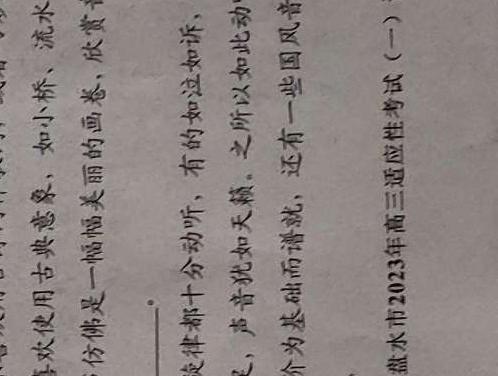 喜欢使用古典意象，如小桥、流水
仿佛是一幅幅美丽的画卷，欣赏
旋律都十分动听，有的如泣如诉，
，声音犹如天籁。之所以如此动
介为基础而谱就，还有一些国风音
盘水市2023年高三适应性考试（一）